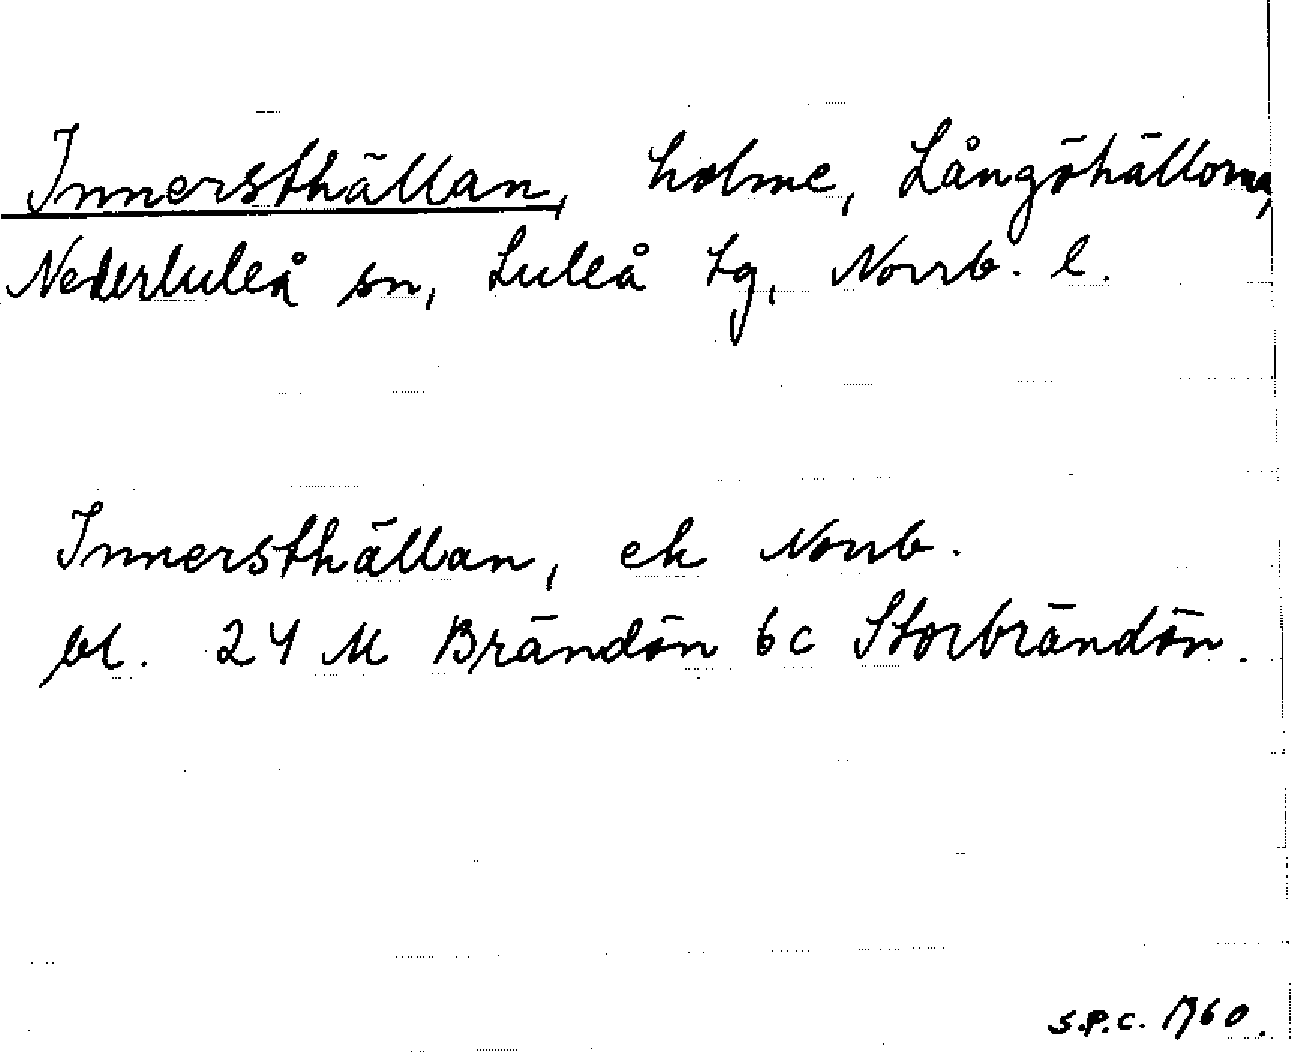 Innersthällan, holme, Långöhällorna,
Nederluleå sn, Luleå lg, Norrb. l.
Innersthällan, ek Norrb.
bl. 24 M Brändön 6c Storbrändön.
S.P.C. 1960.